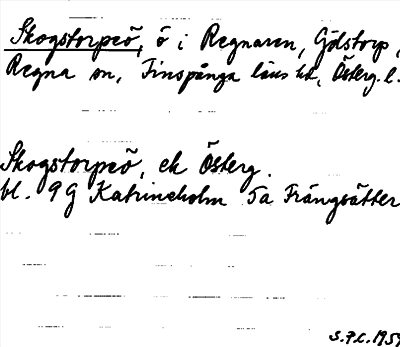 Skogstorpeö, ö i Regnaren, Gölstorp,
Regna sn, Finspånga läns hd, Österg. l.
Skogstorpeö, ek Österg.
bl. 9G Katrineholm 5a Frängsätter
S.P.L. 1959